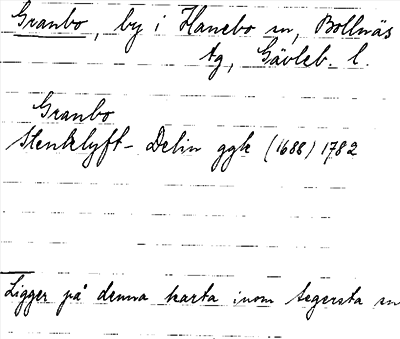 Granbo, by i Hanebo sn, Bollnäs
tg, Gävleb. l.
Granbo
Stenklyft- Delin ggk (1688) 1782
Ligger på denna karta inom Segersta sn